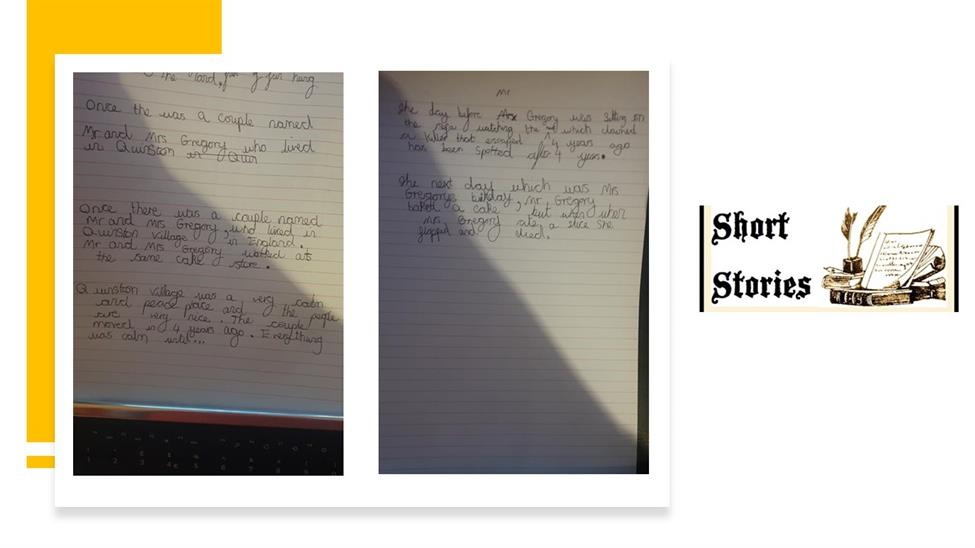 the land, fun of fun
Once the was a couple named
Mr and Mrs Gregory who lived
in Qwinston in
Once there was a couple named
Mr and Mrs Gregory, who lived in
Qwinston village in England.
Mr and Mrs Gregory worked at
the same cake store.
Qwinston village was a very calm
and peace place and the people
are very nice. The couple
moved in 4 years ago. Everything
was calm until...
Mr
The day before Mrs Gregory was sitting on
the sofa watching the which claimed
a killer that escaped 4 years ago
has been spotted after 4 years.
The next day which was Mrs
Gregory's birthday, Mr Gregory
baked a cake but when when
Mrs Gregory ate a slice she
flopped and died.
Short
Stories